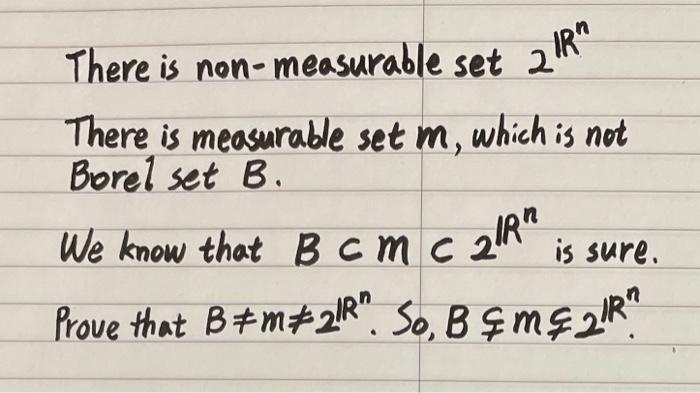 There is non-measurable set 2^ℝⁿ
There is measurable set m, which is not
Borel set B.
We know that B ⊂ m ⊂ 2^ℝⁿ is sure.
Prove that B ≠ m ≠ 2^ℝⁿ. So, B ⊊ m ⊊ 2^ℝⁿ.